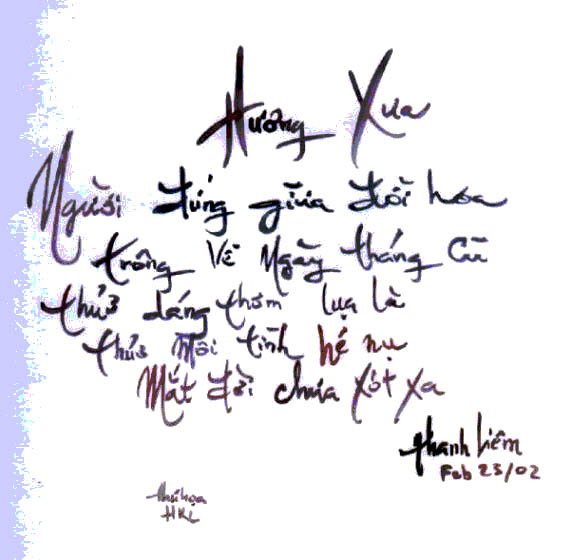 Hương Xưa
Người đứng giữa đồi hoa
trông Về Ngày tháng Cũ
thuở dáng thơm lụa là
thuở Môi tình hé nụ
Mắt đời chưa xót xa
thanh liêm
Feb 23/02
thư họa
HKL